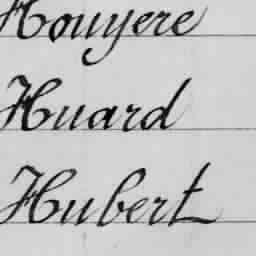 Houyere
Huard
Hubert